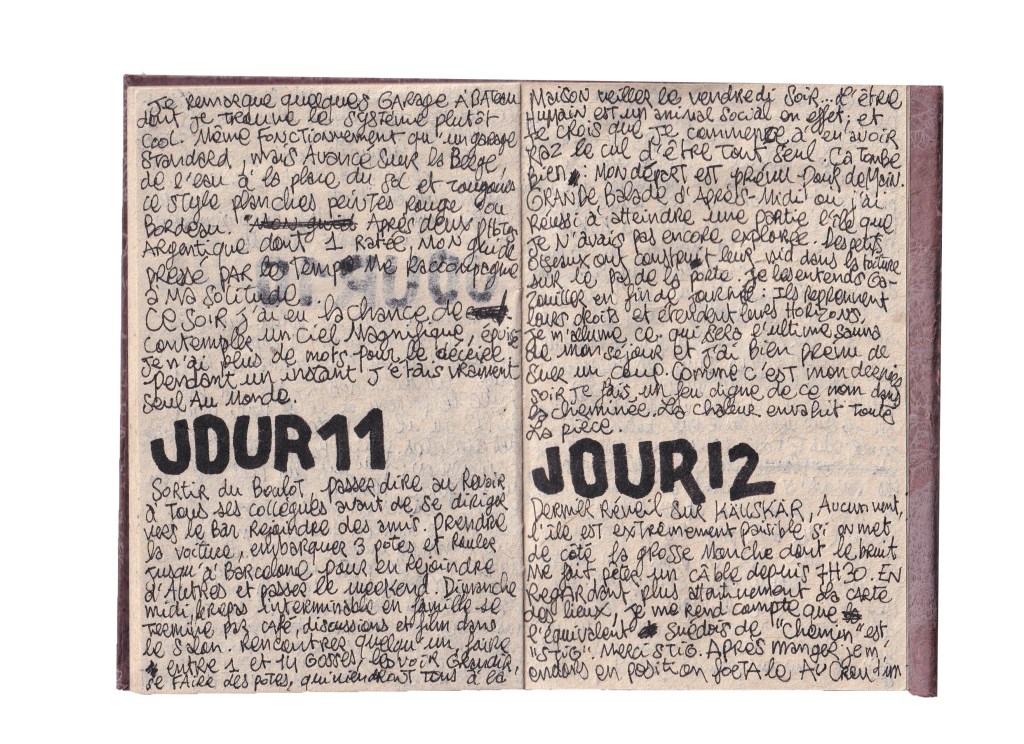 Je remarque quelques GARAGE À BATEAU
dont je trouve le système plutôt
cool. Même fonctionnement qu'un garage
standard, mais Avancé sur la Berge,
de l'eau à la place du sol et toujours
ce style planches peintes Rouge ou
Bordeau. Après deux photos
Argentique dont 1 Ratée, MON guide
pressé PAR le Temps me Raccompagne
à MA solitude.
Ce soir j'ai eu la chance de
contempler un ciel Magnifique,
je n'ai plus de mots pour le décrire.
pendant un instant j'étais vraiment
seul Au Monde.
JOUR 11
Sortir du Boulot, passer dire au Revoir
à tous ses collègues avant de se diriger
vers le Bar Rejoindre des amis. Prendre
la voiture, embarquer 3 potes et Rouler
jusqu'à Barcelone pour en Rejoindre
d'Autres et passer le weekend. Dimanche
midi, le repas interminable en famille se
termine par café, discussions et film dans
le salon. Rencontrer quelqu'un, faire
entre 1 et 14 Gosses, les voir Grandir,
se FAIRE des potes, qui viendront tous à la
MAISON veiller le vendredi soir... L'être
Humain est un animal social en effet, et
Je crois que je commence à en avoir
RAZ le cul d'être tout seul. Ça tombe
bien, MON départ est prévu pour deMain.
GRANDE Balade d'Après-Midi où j'ai
Réussi à atteindre une partie de l'île que
je n'avais pas encore explorée. Des petits
oiseaux ont construit leur nid dans la toiture
sur le pas de la porte. Je les entends GA-
zouiller en fin de journée : Ils reprennent
leurs droits et étendent leurs Horizons.
Je m'allume ce qui sera l'ultime sauna
de mon séjour et j'ai bien prévu de
suer un coup. Comme c'est mon dernier
soir je fais un feu digne de ce nom dans
la cheminée. La chaleur envahit toute
La pièce.
JOUR 12
Dernier Réveil sur KÄLLSKÄR, Aucun vent,
l'île est extrêmement paisible si on met
de côté la grosse Mouche dont le bruit
me fait péter un câble depuis 7H30. EN
RegARdant plus attentivement la carte
des lieux, je me rend compte que
l'équivalent suédois de "Chemin" est
"STIG". Merci STIG. Après manger je m'
endors en position foetale Au Creux d'un